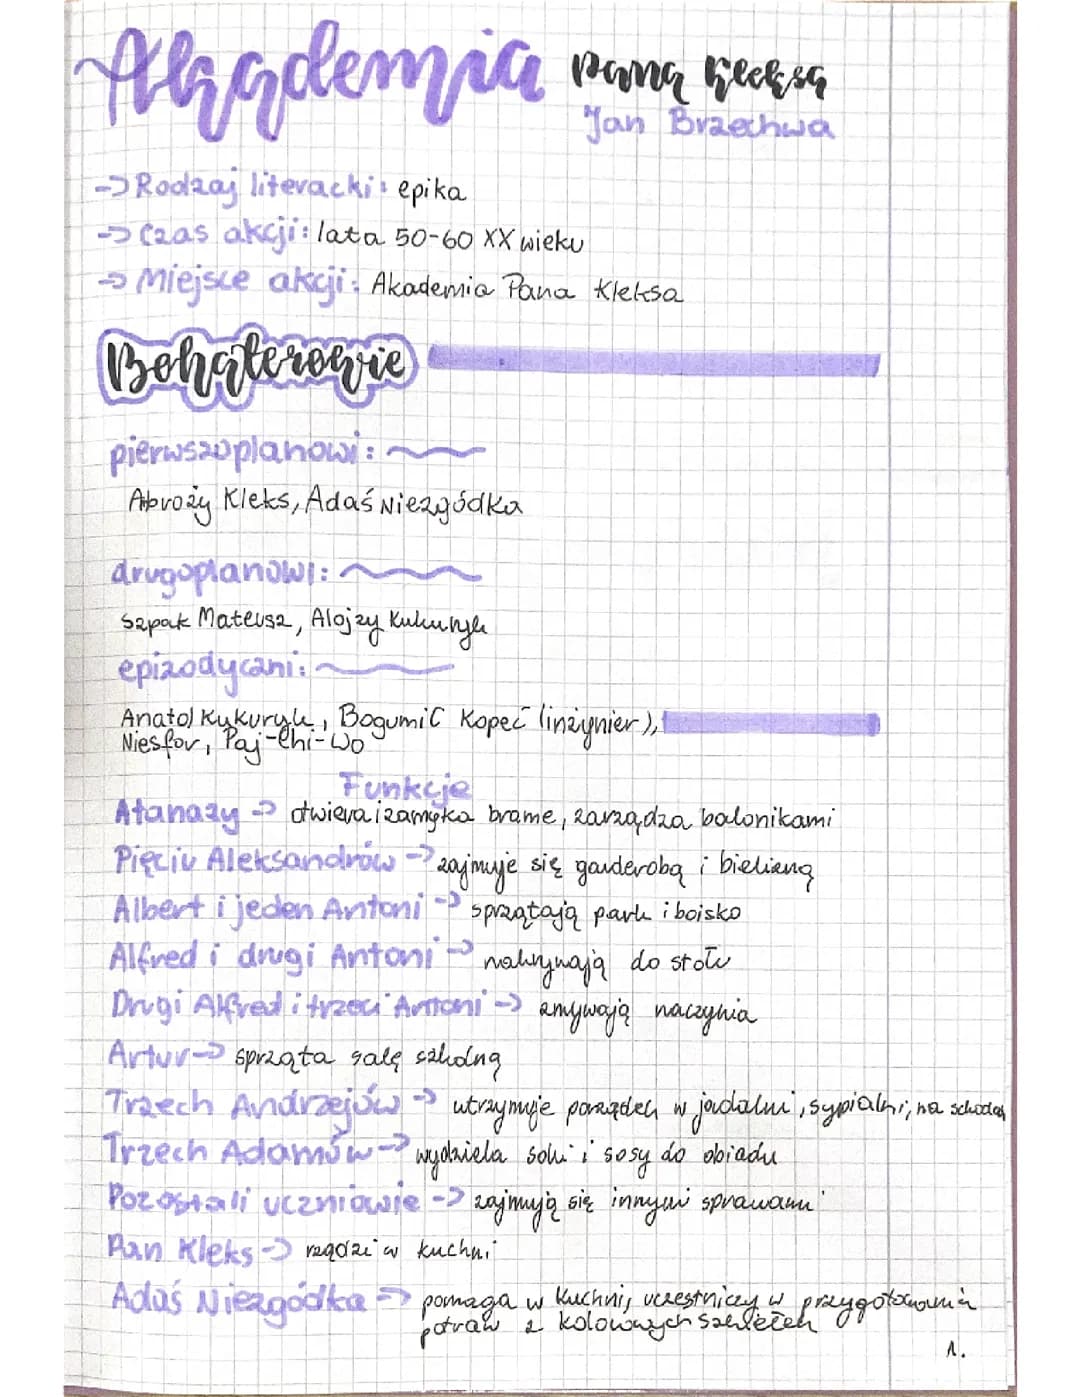 Akademia pana kleksa
Jan Brzechwa
-> Rodzaj literacki: epika
-> Czas akcji: lata 50-60 XX wieku
-> Miejsce akcji: Akademia Pana Kleksa
Bohaterowie
pierwszoplanowi:
Abroży Kleks, Adaś Niezgódka
drugoplanowi:
Szpak Mateusz, Alojzy Kukuryk
epizodyczni:
Anatol Kukuryk, Bogumił Kopeć (inżynier),
Niesfor, Paj-Chi-Wo
Funkcje
Atanazy -> otwiera i zamyka brame, zarządza balonikami
Pięciu Aleksandrów -> zajmuje się garderobą i bielizną
Albert i jeden Antoni -> sprzątają park i boisko
Alfred i drugi Antoni -> nakrywają do stołu
Drugi Alfred i trzeci Antoni -> zmywają naczynia
Artur -> sprząta salę szkolną
Trzech Andrzejów -> utrzymuje porządek w jadalni, sypialni, na schodach
Trzech Adamów -> wydziela soki i sosy do obiadu
Pozostali uczniowie -> zajmują się innymi sprawami
Pan Kleks -> rządzi w kuchni
Adaś Niezgódka -> pomaga w kuchni, uczestniczy w przygotowaniu
potraw z kolorowych szkiełek
1.